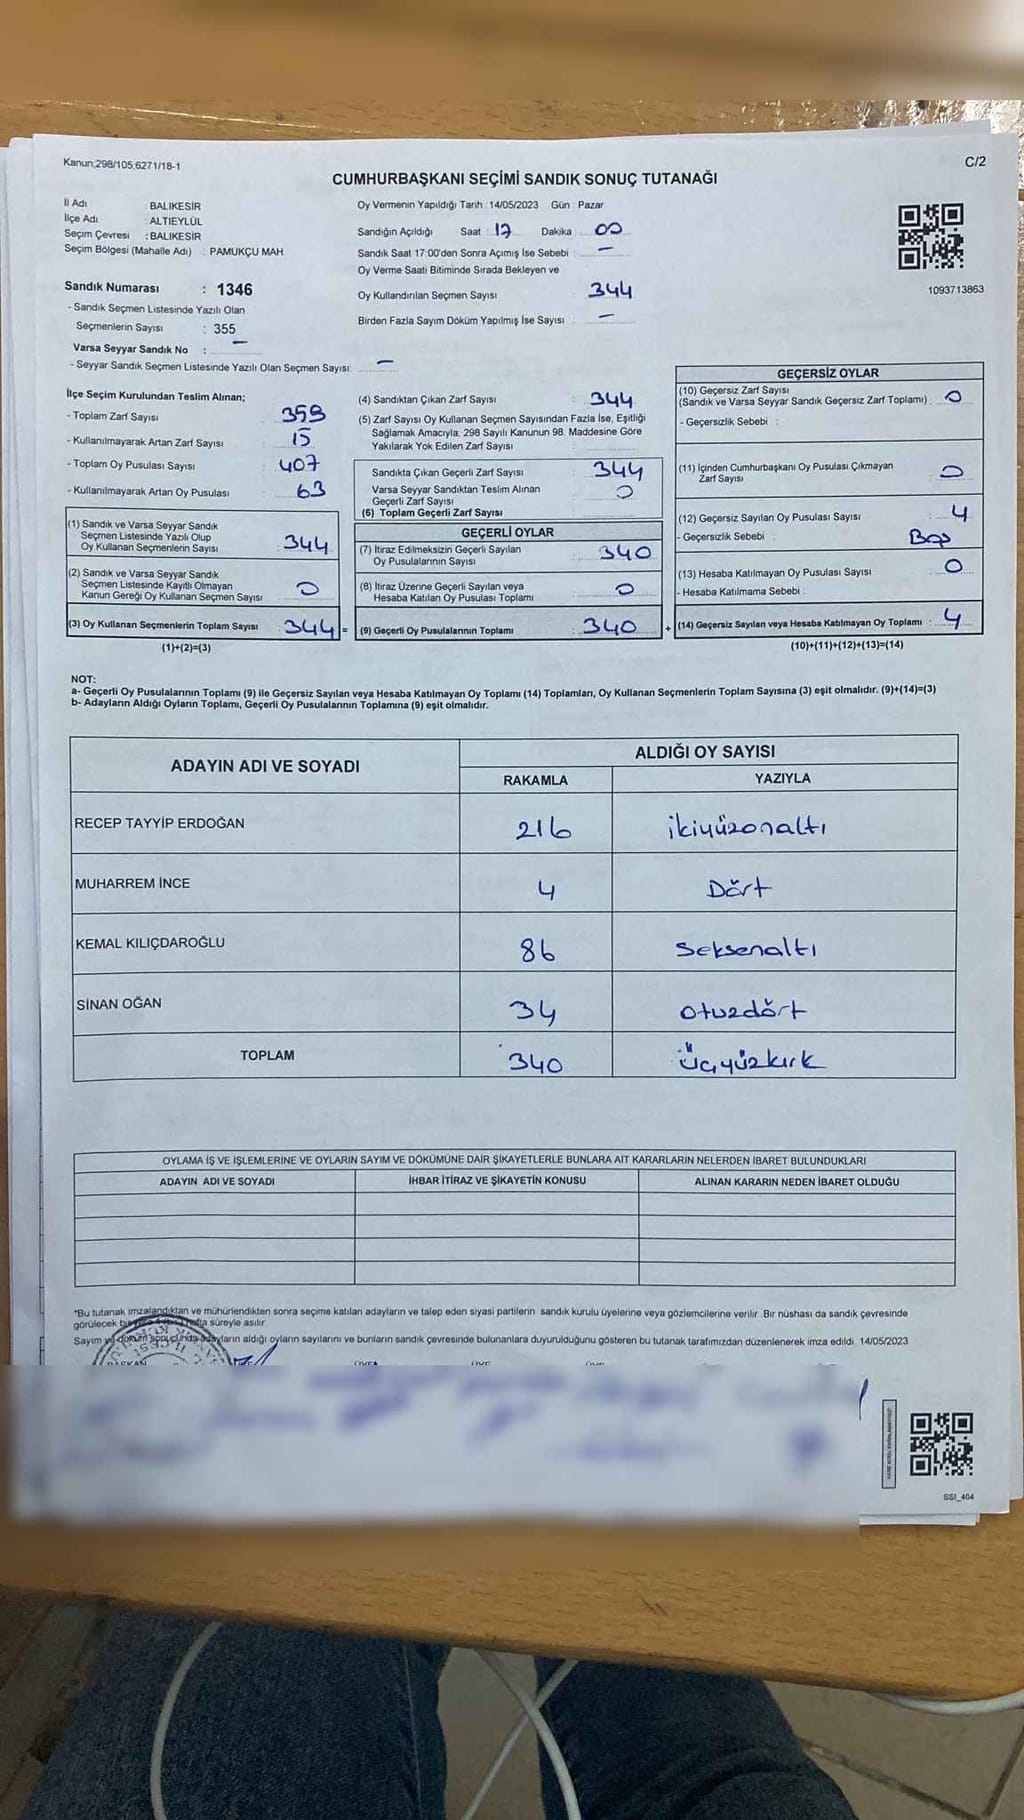 Kanun;298/105;6271/18-1
C/2
CUMHURBAŞKANI SEÇİMİ SANDIK SONUÇ TUTANAĞI
İl Adı : BALIKESİR
İlçe Adı : ALTIEYLÜL
Seçim Çevresi : BALIKESİR
Seçim Bölgesi (Mahalle Adı) : PAMUKÇU MAH
Sandık Numarası : 1346
- Sandık Seçmen Listesinde Yazılı Olan
Seçmenlerin Sayısı : 355
Varsa Seyyar Sandık No : –
- Seyyar Sandık Seçmen Listesinde Yazılı Olan Seçmen Sayısı: –
Oy Vermenin Yapıldığı Tarih : 14/05/2023 Gün : Pazar
Sandığın Açıldığı Saat : 17 Dakika : 00
Sandık Saat 17:00'den Sonra Açımış İse Sebebi : –
Oy Verme Saati Bitiminde Sırada Bekleyen ve
Oy Kullandırılan Seçmen Sayısı : 344
Birden Fazla Sayım Döküm Yapılmış İse Sayısı : –
1093713863
İlçe Seçim Kurulundan Teslim Alınan;
- Toplam Zarf Sayısı : 359
- Kullanılmayarak Artan Zarf Sayısı : 15
- Toplam Oy Pusulası Sayısı : 407
- Kullanılmayarak Artan Oy Pusulası : 63
(1) Sandık ve Varsa Seyyar Sandık
Seçmen Listesinde Yazılı Olup
Oy Kullanan Seçmenlerin Sayısı : 344
(2) Sandık ve Varsa Seyyar Sandık
Seçmen Listesinde Kayıtlı Olmayan
Kanun Gereği Oy Kullanan Seçmen Sayısı : 0
(3) Oy Kullanan Seçmenlerin Toplam Sayısı : 344 =
(1)+(2)=(3)
(4) Sandıktan Çıkan Zarf Sayısı : 344
(5) Zarf Sayısı Oy Kullanan Seçmen Sayısından Fazla İse, Eşitliği
Sağlamak Amacıyla; 298 Sayılı Kanunun 98. Maddesine Göre
Yakılarak Yok Edilen Zarf Sayısı :
Sandıkta Çıkan Geçerli Zarf Sayısı : 344
Varsa Seyyar Sandıktan Teslim Alınan
Geçerli Zarf Sayısı : 0
(6) Toplam Geçerli Zarf Sayısı :
GEÇERLİ OYLAR
(7) İtiraz Edilmeksizin Geçerli Sayılan
Oy Pusulalarının Sayısı : 340
(8) İtiraz Üzerine Geçerli Sayılan veya
Hesaba Katılan Oy Pusulası Toplamı : 0
(9) Geçerli Oy Pusulalarının Toplamı : 340 +
GEÇERSİZ OYLAR
(10) Geçersiz Zarf Sayısı
(Sandık ve Varsa Seyyar Sandık Geçersiz Zarf Toplamı) : 0
- Geçersizlik Sebebi :
(11) İçinden Cumhurbaşkanı Oy Pusulası Çıkmayan
Zarf Sayısı : 0
(12) Geçersiz Sayılan Oy Pusulası Sayısı : 4
- Geçersizlik Sebebi : Boş
(13) Hesaba Katılmayan Oy Pusulası Sayısı : 0
- Hesaba Katılmama Sebebi :
(14) Geçersiz Sayılan veya Hesaba Katılmayan Oy Toplamı : 4
(10)+(11)+(12)+(13)=(14)
NOT:
a- Geçerli Oy Pusulalarının Toplamı (9) ile Geçersiz Sayılan veya Hesaba Katılmayan Oy Toplamı (14) Toplamları, Oy Kullanan Seçmenlerin Toplam Sayısına (3) eşit olmalıdır. (9)+(14)=(3)
b- Adayların Aldığı Oyların Toplamı, Geçerli Oy Pusulalarının Toplamına (9) eşit olmalıdır.
ADAYIN ADI VE SOYADI ALDIĞI OY SAYISI
RAKAMLA YAZIYLA
RECEP TAYYİP ERDOĞAN 216 ikiyüzonaltı
MUHARREM İNCE 4 Dört
KEMAL KILIÇDAROĞLU 86 Seksenaltı
SİNAN OĞAN 34 otuzdört
TOPLAM 340 Üçyüzkırk
OYLAMA İŞ VE İŞLEMLERİNE VE OYLARIN SAYIM VE DÖKÜMÜNE DAİR ŞİKAYETLERLE BUNLARA AİT KARARLARIN NELERDEN İBARET BULUNDUKLARI
ADAYIN ADI VE SOYADI İHBAR İTİRAZ VE ŞİKAYETİN KONUSU ALINAN KARARIN NEDEN İBARET OLDUĞU
*Bu tutanak imzalandıktan ve mühürlendikten sonra seçime katılan adayların ve talep eden siyasi partilerin sandık kurulu üyelerine veya gözlemcilerine verilir. Bir nüshası da sandık çevresinde
görülecek bir hafta süreyle asılır.
Sayım ve döküm sonucunda adayların aldığı oyların sayılarını ve bunların sandık çevresinde bulunanlara duyurulduğunu gösteren bu tutanak tarafımızdan düzenlenerek imza edildi. 14/05/2023
BAŞKAN ÜYE ÜYE
SSI_404